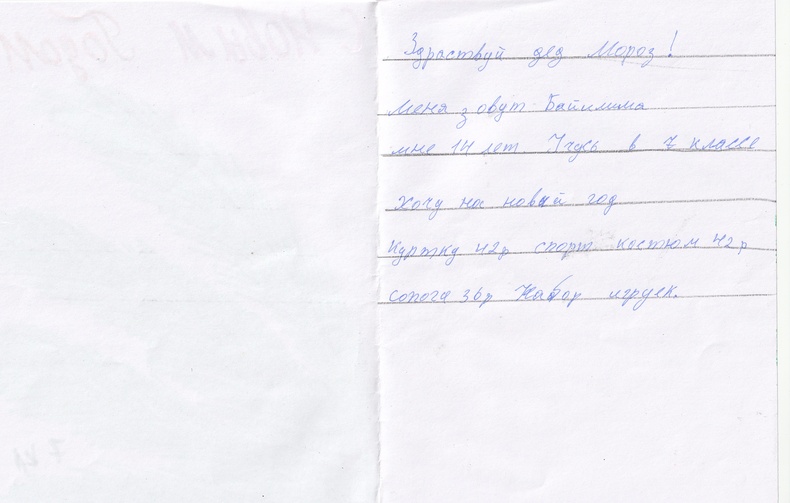 С Новым Годом
7 кл
Здраствуй дед Мороз!
Меня зовут Байлима
мне 14 лет. Учусь в 7 классе
Хочу на новый год
Куртку 42р спорт костюм 42р
сопога 36р Набор игруек.